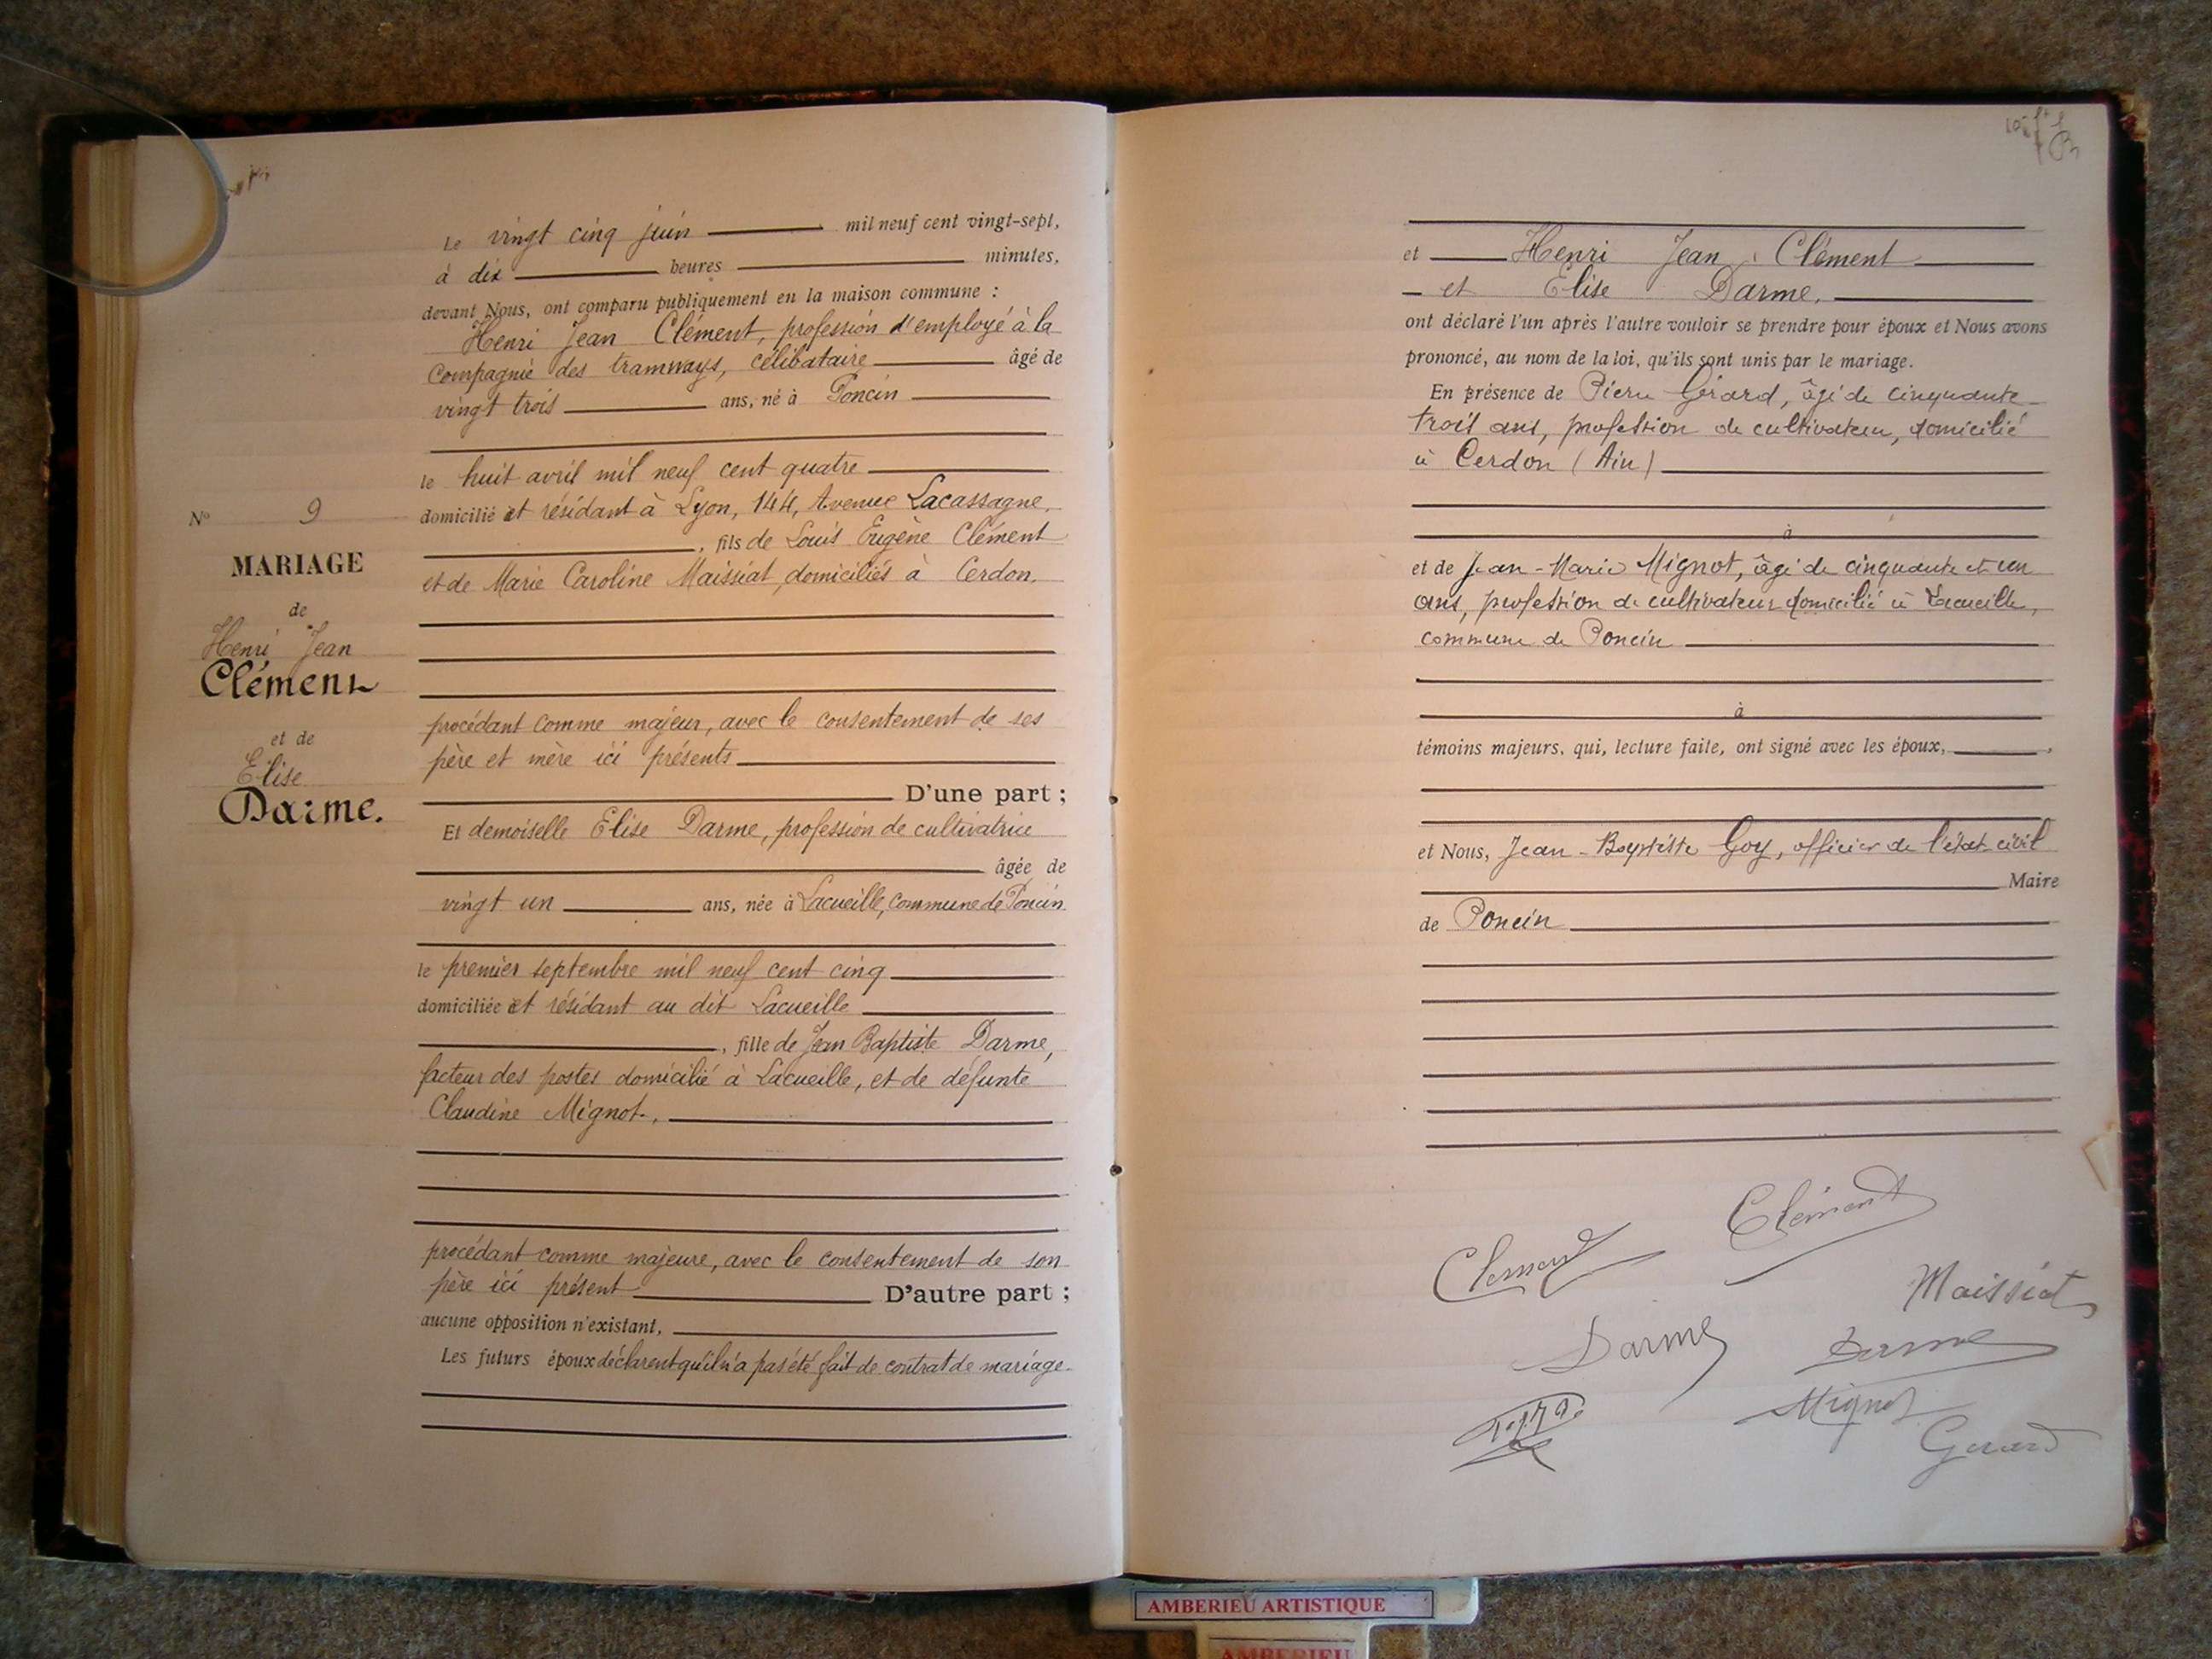 Le vingt cinq juin mil neuf cent vingt-sept,
à dix heures minutes,
devant Nous, ont comparu publiquement en la maison commune :
Henri Jean Clément, profession d'employé à la
Compagnie des tramways, célibataire âgé de
vingt trois ans, né à Poncin
le huit avril mil neuf cent quatre
domicilié et résidant à Lyon, 144, Avenue Lacassagne,
, fils de Louis Eugène Clément
et de Marie Caroline Maissiat, domiciliés à Cerdon.
procédant comme majeur, avec le consentement de ses
père et mère ici présents
D'une part ;
Et demoiselle Elise Darme, profession de cultivatrice
âgée de
vingt un ans, née à Lacueille, commune de Poncin
le premier septembre mil neuf cent cinq
domiciliée et résidant au dit Lacueille
, fille de Jean Baptiste Darme,
facteur des postes domicilié à Lacueille, et de défunte
Claudine Mignot.,
procédant comme majeure, avec le consentement de son
père ici présent D'autre part ;
aucune opposition n'existant,
Les futurs époux déclarent qu'il n'a pas été fait de contrat de mariage.
N° 9
MARIAGE
de
Henri Jean
Clément
et de
Elise
Darme.
et Henri Jean Clément
et Elise Darme.
ont déclaré l'un après l'autre vouloir se prendre pour époux et Nous avons
prononcé, au nom de la loi, qu'ils sont unis par le mariage.
En présence de Pierre Gérard, âgé de cinquante
trois ans, profession de cultivateur, domicilié
à Cerdon (Ain)
à
et de Jean-Marie Mignot, âgé de cinquante et un
ans, profession de cultivateur domicilié à Lacueille,
commune de Poncin
à
témoins majeurs, qui, lecture faite, ont signé avec les époux,
et Nous, Jean-Baptiste Goy, officier de l'état-civil
Maire
de Poncin
Clément
Clément
Maissiat
Darme
Darme
Mignot
Gerard
AMBERIEU ARTISTIQUE
AMBERIEU